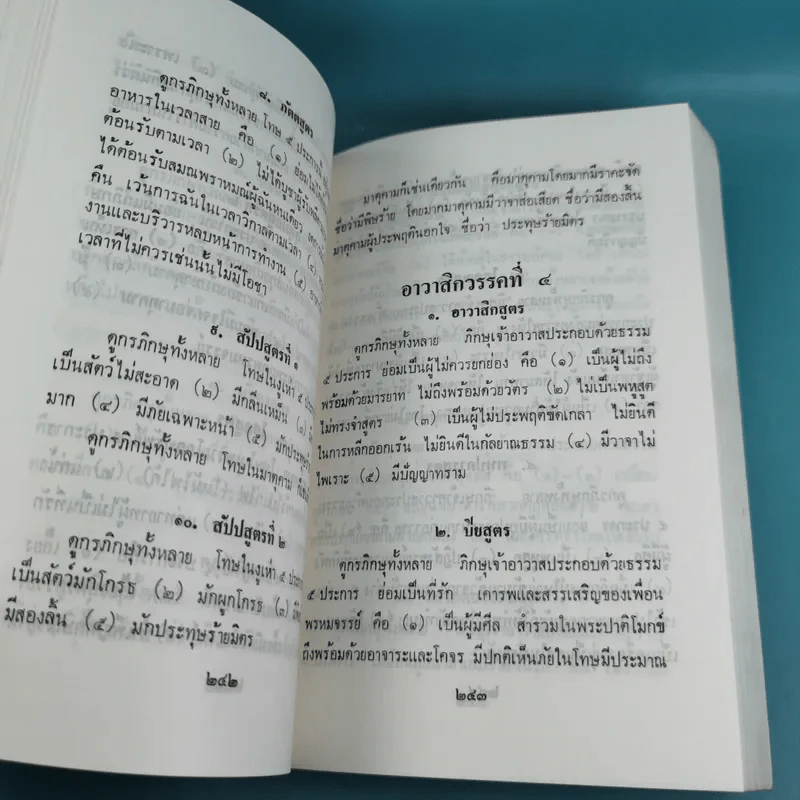 ๘. ภัตตสูตร
ดูกรภิกษุทั้งหลาย โทษ ๕ ประการ
อาหารในเวลาสาย คือ (๑) ย่อมไม่ได้
ต้อนรับตามเวลา (๒) ไม่ได้บูชาผู้รับพลี
ได้ต้อนรับสมณพราหมณ์ผู้ฉันหนเดียว
คืน เว้นการฉันในเวลาวิกาลตามเวลา (๔)
งานและบริวารหลบหน้าการทำงาน (๕)
เวลาที่ไม่ควรเช่นนั้นไม่มีโอชา
๙. สัปปสูตรที่ ๑
ดูกรภิกษุทั้งหลาย โทษในงูเห่า ๕ ประการ
เป็นสัตว์ไม่สะอาด (๒) มีกลิ่นเหม็น (๓)
มาก (๔) มีภัยเฉพาะหน้า (๕) มักประทุษ
ดูกรภิกษุทั้งหลาย โทษในมาตุคาม ก็
๑๐. สัปปสูตรที่ ๒
ดูกรภิกษุทั้งหลาย โทษในงูเห่า ๕ ประการ
เป็นสัตว์มักโกรธ (๒) มักผูกโกรธ (๓)
มีสองลิ้น (๕) มักประทุษร้ายมิตร
๒๔๒
มาตุคามก็เช่นเดียวกัน คือมาตุคามโดยมากมีราคะจัด
ชื่อว่ามีพิษร้าย โดยมากมาตุคามมีวาจาส่อเสียด ชื่อว่ามีสองลิ้น
มาตุคามผู้ประพฤตินอกใจ ชื่อว่า ประทุษร้ายมิตร
อาวาสิกวรรคที่ ๔
๑. อาวาสิกสูตร
ดูกรภิกษุทั้งหลาย ภิกษุเจ้าอาวาสประกอบด้วยธรรม
๕ ประการ ย่อมเป็นผู้ไม่ควรยกย่อง คือ (๑) เป็นผู้ไม่ถึง
พร้อมด้วยมารยาท ไม่ถึงพร้อมด้วยวัตร (๒) ไม่เป็นพหูสูต
ไม่ทรงจำสูตร (๓) เป็นผู้ไม่ประพฤติขัดเกลา ไม่ยินดี
ในการหลีกออกเร้น ไม่ยินดีในกัลยาณธรรม (๔) มีวาจาไม่
ไพเราะ (๕) มีปัญญาทราม
๒. ปิยสูตร
ดูกรภิกษุทั้งหลาย ภิกษุเจ้าอาวาสประกอบด้วยธรรม
๕ ประการ ย่อมเป็นที่รัก เคารพและสรรเสริญของเพื่อน
พรหมจรรย์ คือ (๑) เป็นผู้มีศีล สำรวมในพระปาติโมกข์
ถึงพร้อมด้วยอาจาระและโคจร มีปกติเห็นภัยในโทษมีประมาณ
๒๔๓